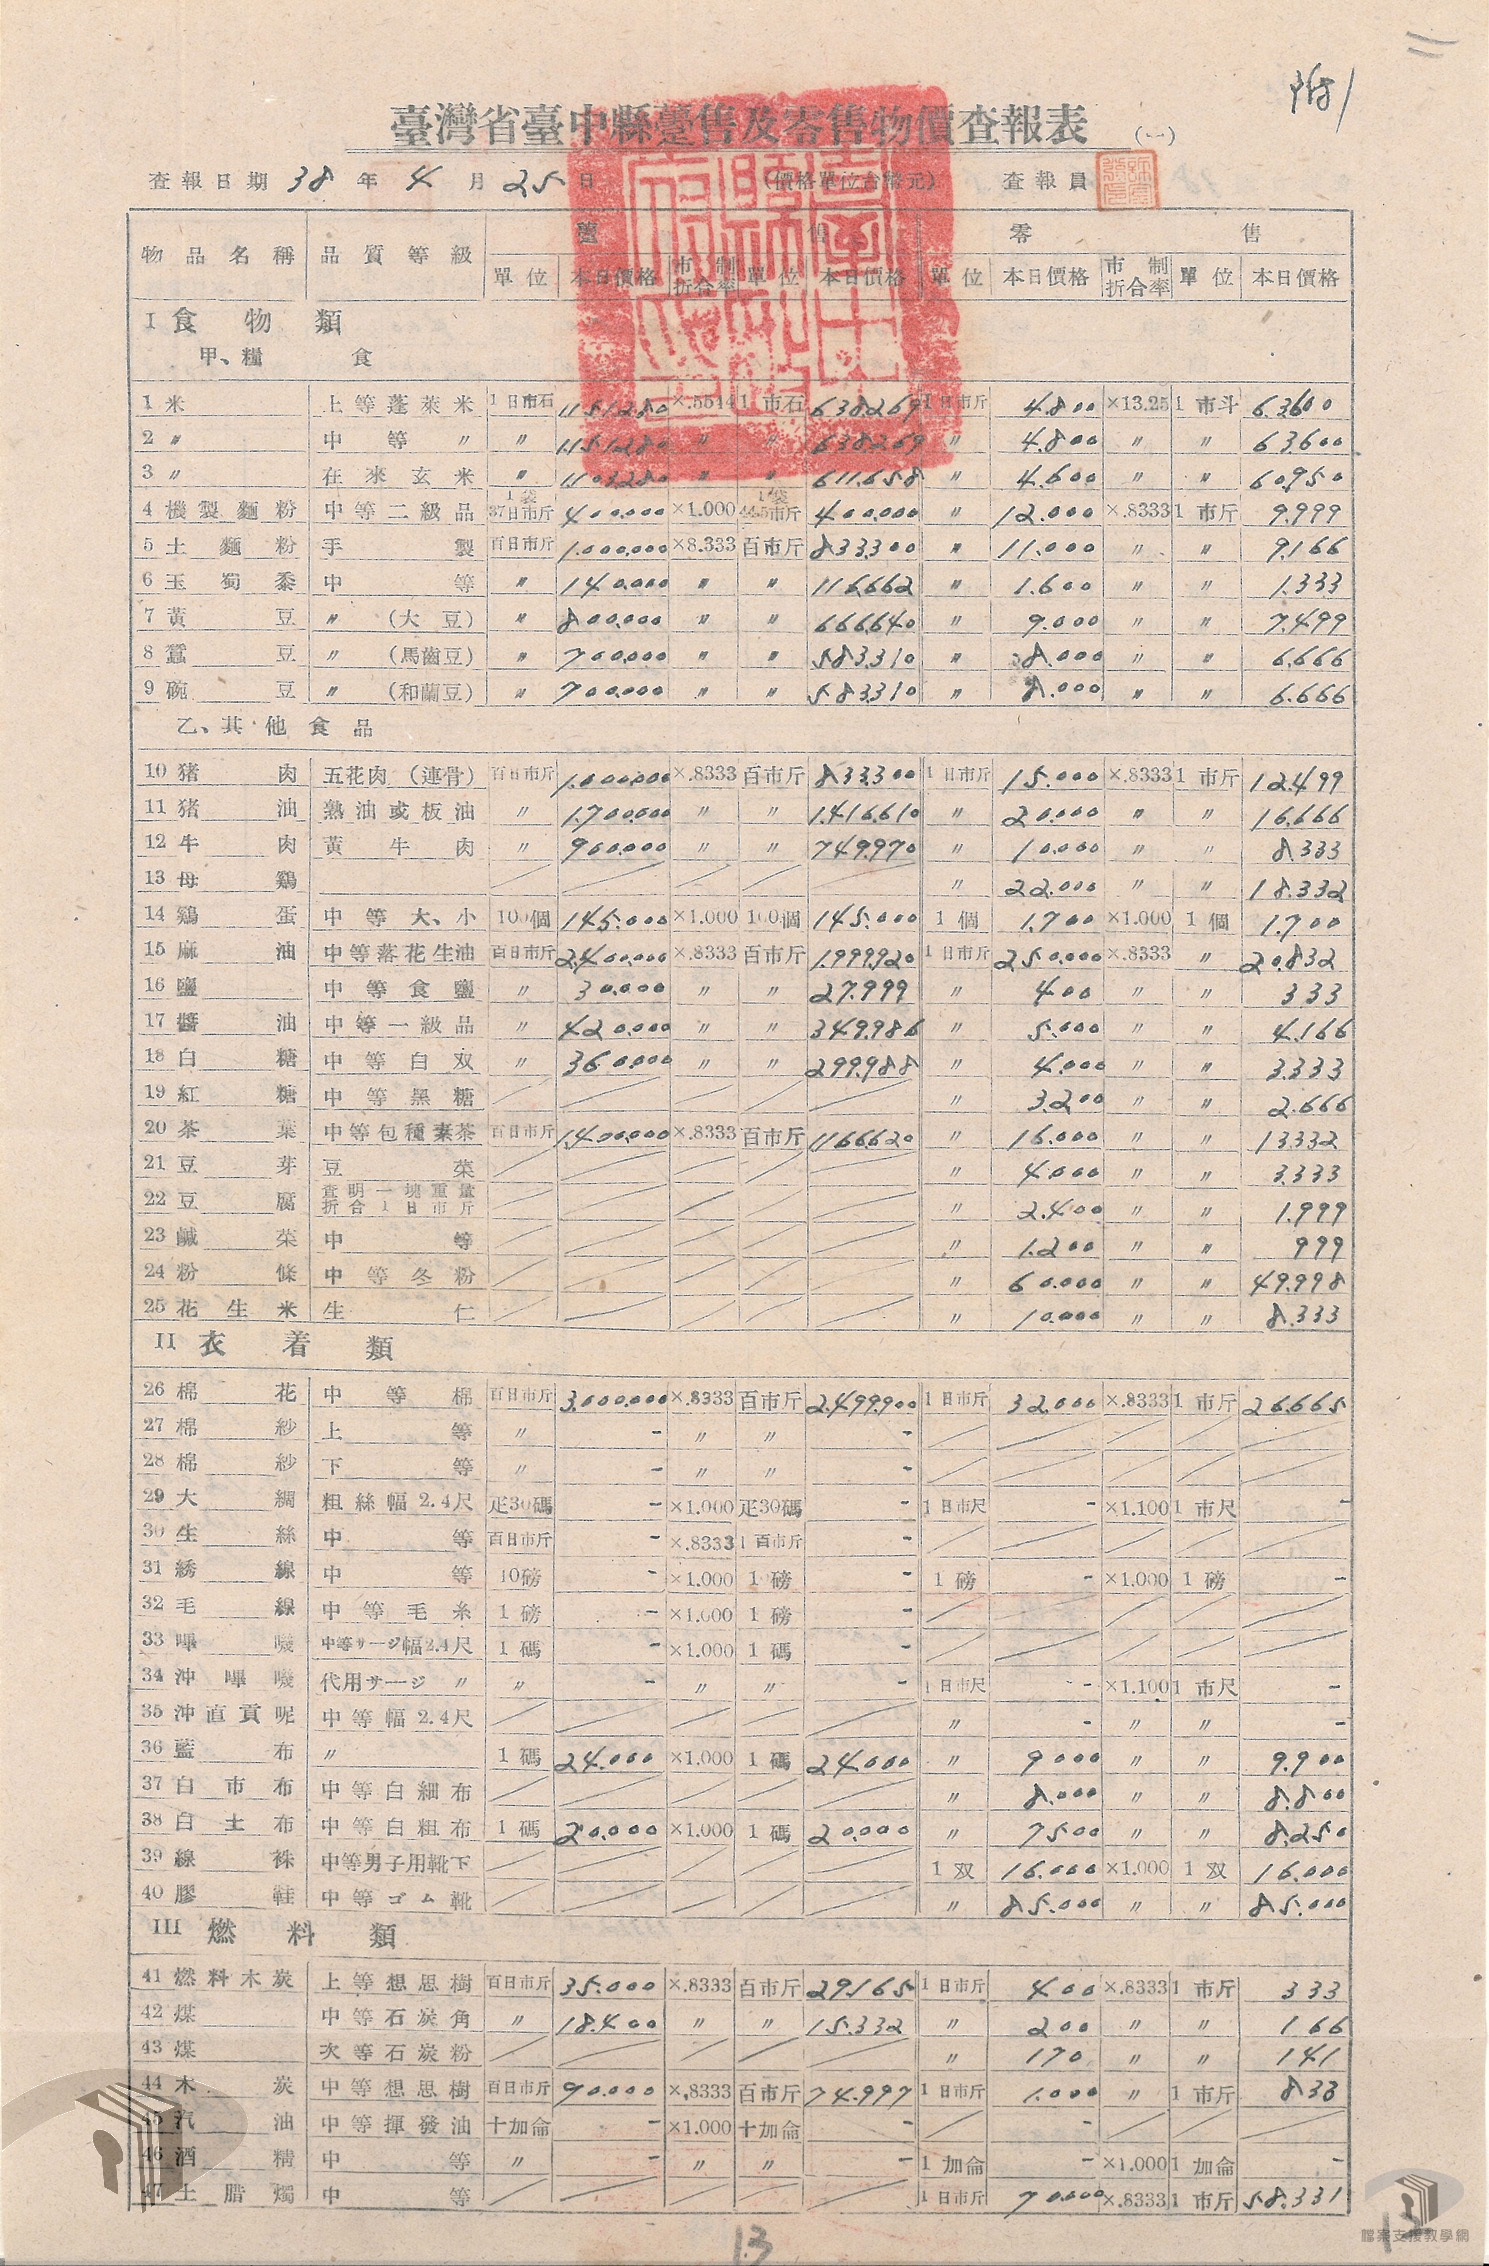 附1
臺灣省臺中縣躉售及零售物價查報表(一)
查報日期 38 年 4 月 25 日 (價格單位台幣元) 查報員
物品名稱 品質等級 躉售 零售
單位 本日價格 市制折合率 單位 本日價格 單位 本日價格 市制折合率 單位 本日價格
I 食物類
甲、糧食
1 米 上等蓬萊米 1日市石 1,151.280 ×.5544 1市石 638.269 1日市斤 4.800 ×13.25 1市斗 63.600
2 〃 中等〃 〃 1,151.280 〃 〃 638.269 〃 4.800 〃 〃 63.600
3 〃 在來玄米 〃 1,103.280 〃 〃 611.658 〃 4.600 〃 〃 60.950
4 機製麵粉 中等二級品 1袋37日市斤 400.000 ×1.000 1袋44.5市斤 400.000 〃 12.000 ×.8333 1市斤 9.999
5 土麵粉 手製 百日市斤 1.000.000 ×8.333 百市斤 833.300 〃 11.000 〃 〃 9.166
6 玉蜀黍 中等 〃 140.000 〃 〃 116.662 〃 1.600 〃 〃 1.333
7 黃豆 〃(大豆) 〃 800.000 〃 〃 666.640 〃 9.000 〃 〃 7.499
8 蠶豆 〃(馬齒豆) 〃 700.000 〃 〃 583.310 〃 8.000 〃 〃 6.666
9 碗豆 〃(和蘭豆) 〃 700.000 〃 〃 583.310 〃 8.000 〃 〃 6.666
乙、其他食品
10 猪肉 五花肉(連骨) 百日市斤 1.000.000 ×.8333 百市斤 833.300 1日市斤 15.000 ×.8333 1市斤 12.499
11 猪油 熟油或板油 〃 1.700.000 〃 〃 1.416.610 〃 20.000 〃 〃 16.666
12 牛肉 黃牛肉 〃 900.000 〃 〃 749.970 〃 10.000 〃 〃 8.333
13 母鷄 〃 22.000 〃 〃 18.332
14 鷄蛋 中等大、小 100個 145.000 ×1.000 100個 145.000 1個 1.700 ×1.000 1個 1.700
15 麻油 中等落花生油 百日市斤 2.400.000 ×.8333 百市斤 1.999.920 1日市斤 250.000 ×.8333 〃 20.832
16 鹽 中等食鹽 〃 30.000 〃 〃 27.999 〃 400 〃 〃 333
17 醬油 中等一級品 〃 420.000 〃 〃 349.986 〃 5.000 〃 〃 4.166
18 白糖 中等白双 〃 360.000 〃 〃 299.988 〃 4.000 〃 〃 3.333
19 紅糖 中等黑糖 〃 3.200 〃 〃 2.666
20 茶葉 中等包種素茶 百日市斤 1.400.000 ×.8333 百市斤 1166.620 〃 16.000 〃 〃 13.332
21 豆芽 豆菜 〃 4.000 〃 〃 3.333
22 豆腐 查明一塊重量折合1日市斤 〃 2.400 〃 〃 1.999
23 鹹菜 中等 〃 1.200 〃 〃 999
24 粉條 中等冬粉 〃 60.000 〃 〃 49.998
25 花生米 生仁 〃 10.000 〃 〃 8.333
II 衣着類
26 棉花 中等棉 百日市斤 3.000.000 ×.8333 百市斤 2.499.900 1日市斤 32.000 ×.8333 1市斤 26.665
27 棉紗 上等 〃 - 〃 〃 -
28 棉紗 下等 〃 - 〃 〃 -
29 大綢 粗絲幅2.4尺 疋30碼 - ×1.000 疋30碼 - 1日市尺 - ×1.100 1市尺 -
30 生絲 中等 百日市斤 - ×.8333 1百市斤 -
31 綉線 中等 10磅 - ×1.000 10磅 - 1磅 - ×1.000 1磅 -
32 毛線 中等毛糸 1磅 - ×1.000 1磅 -
33 嗶嘰 中等サージ幅2.4尺 1碼 - ×1.000 1碼 -
34 沖嗶嘰 代用サージ〃 〃 - 〃 〃 - 1日市尺 - ×1.100 1市尺 -
35 沖直貢呢 中等幅2.4尺 〃 - 〃 〃 -
36 藍布 〃 1碼 24.000 ×1.000 1碼 24.000 〃 9.000 〃 〃 9.900
37 白市布 中等白細布 〃 8.000 〃 〃 8.800
38 白土布 中等白粗布 1碼 20.000 ×1.000 1碼 20.000 〃 7500 〃 〃 8.250
39 線袜 中等男子用靴下 1双 16.000 ×1.000 1双 16.000
40 膠鞋 中等ゴム靴 〃 85.000 〃 〃 85.000
III 燃料類
41 燃料木炭 上等想思樹 百日市斤 35.000 ×.8333 百市斤 29.165 1日市斤 400 ×.8333 1市斤 333
42 煤 中等石炭角 〃 18.400 〃 〃 15.332 〃 200 〃 〃 166
43 煤 次等石炭粉 〃 170 〃 〃 141
44 木炭 中等想思樹 百日市斤 90.000 ×.8333 百市斤 74.997 1日市斤 1.000 〃 1市斤 833
45 汽油 中等揮發油 十加侖 - ×1.000 十加侖 - -
46 酒精 中等 〃 - 〃 〃 - 1加侖 - ×1.000 1加侖 -
47 土腊燭 中等 1日市斤 70.000 ×.8333 1市斤 58.331
13
13
檔案支援教學網